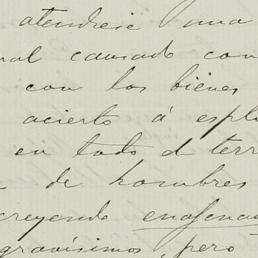 atenderse una
nal causado con
con los bienes
acierto á expl
en todo el terr
de hombres
creyendo
gravísimos, pero